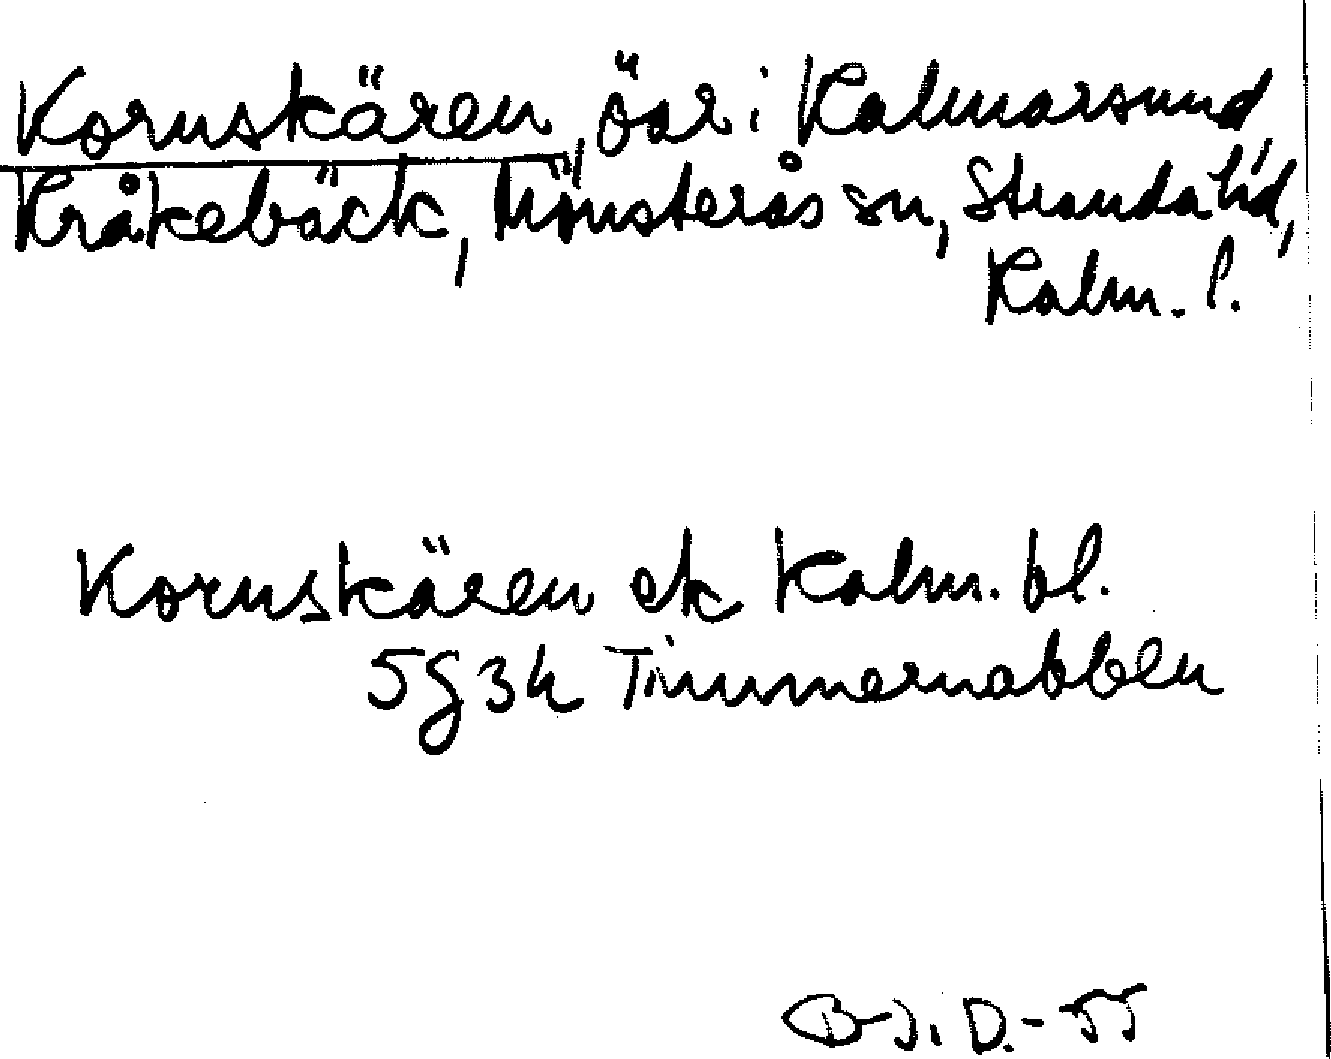 Kornskären, öar i Kalmarsund,
Kråkebäck, Mönsterås sn, Stranda hd,
Kalm. l.
Kornskären ek Kalm. bl.
5g3h Timmernabben
B-J.D.-55